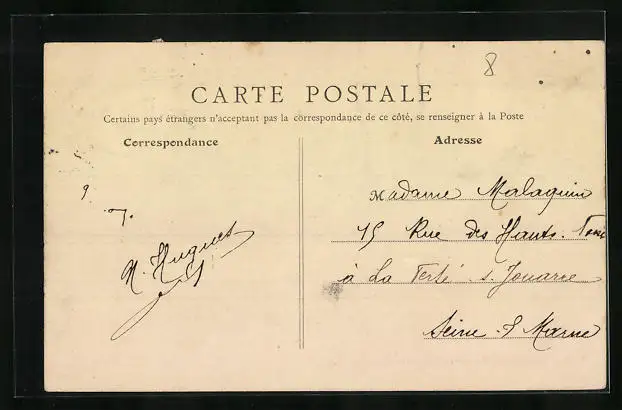 8
CARTE POSTALE
Certains pays étrangers n'acceptant pas la correspondance de ce côté, se renseigner à la Poste
Correspondance
Adresse
N. Hugues
Madame Malaquin
15 Rue des Hauts
à La Ferté s. Jouarre
Seine & Marne